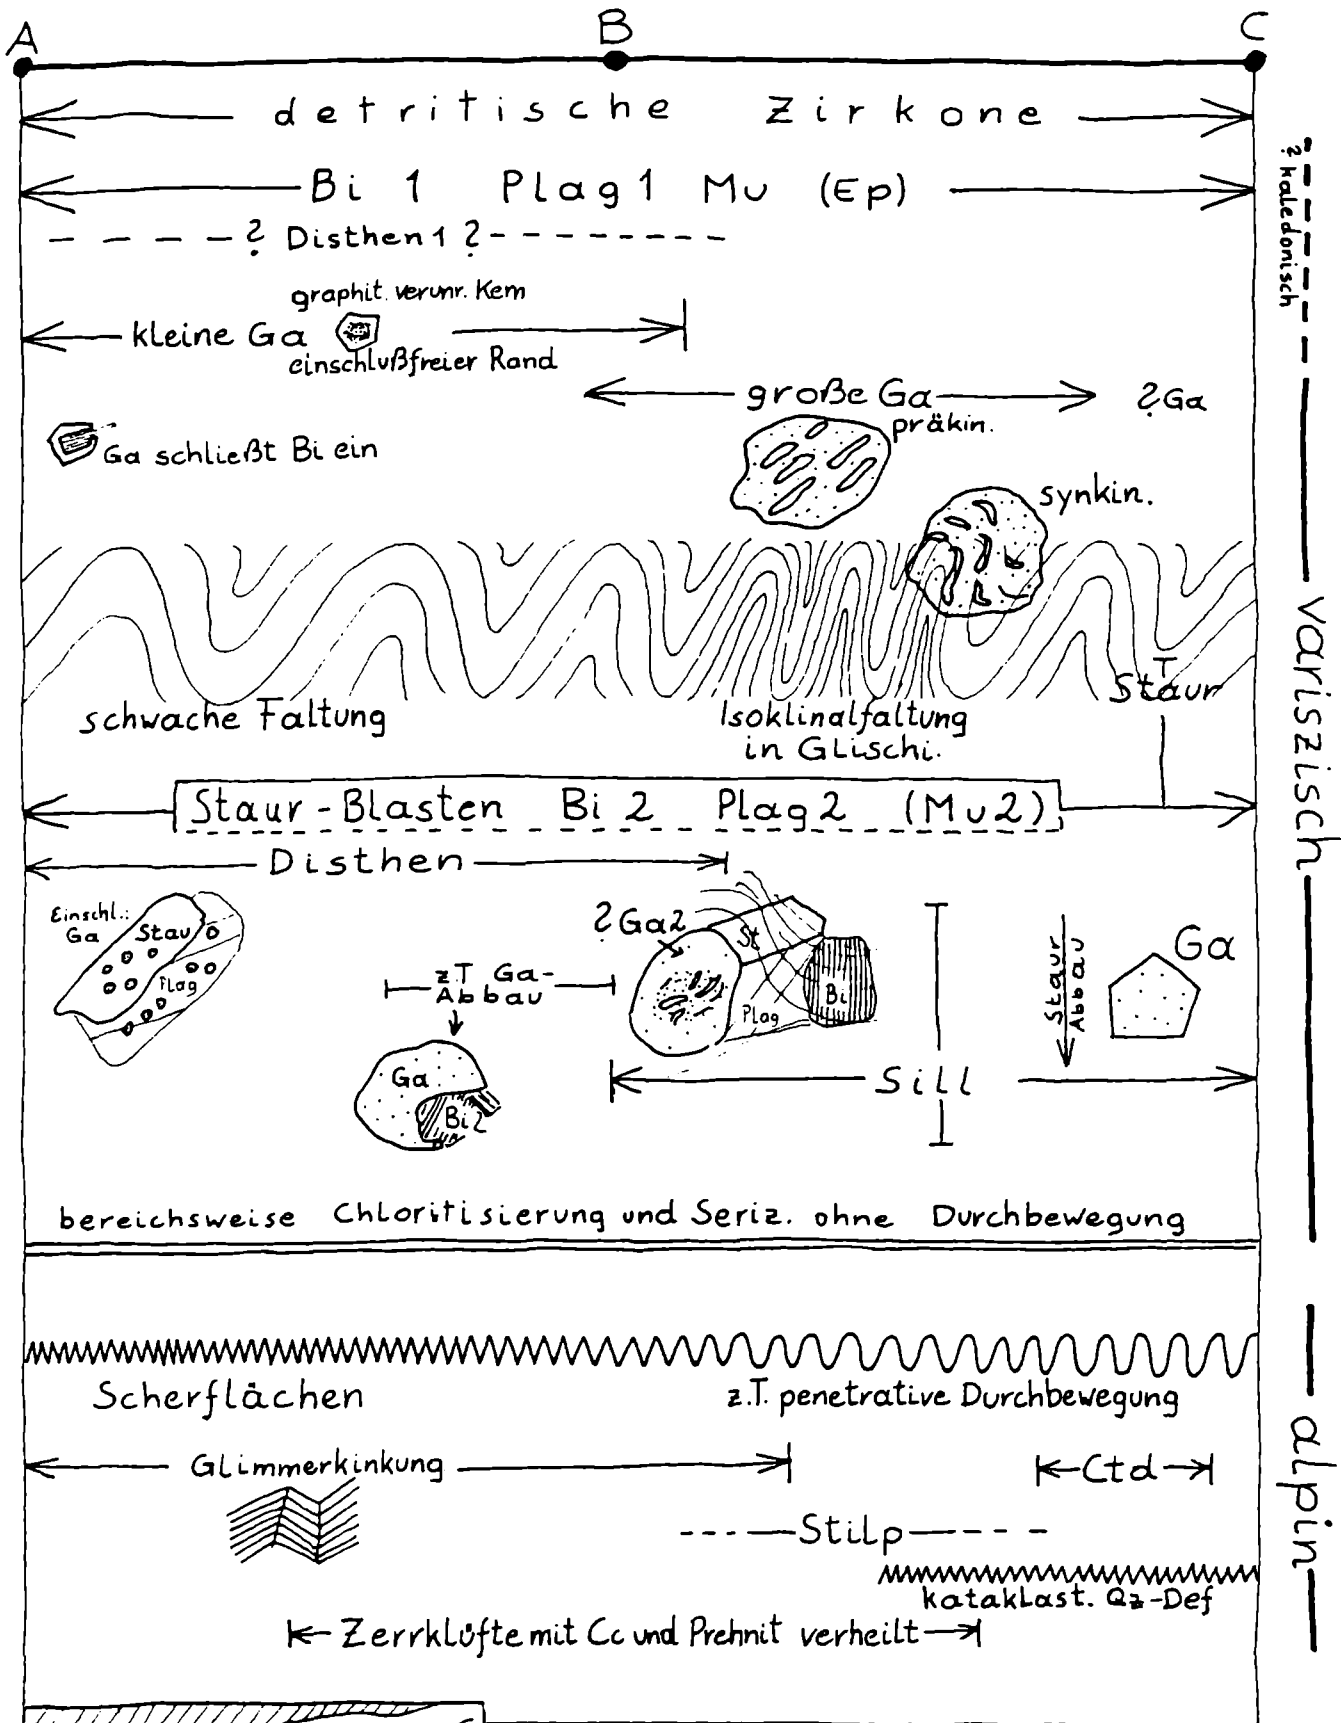 A B C
detritische Zirkone
Bi 1 Plag1 Mu (Ep)
? Disthen1 ?
graphit. verunr. Kern
kleine Ga
einschlußfreier Rand
große Ga
?Ga
präkin.
Ga schließt Bi ein
synkin.
Staur
schwache Faltung
Isoklinalfaltung
in Glischi.
Staur-Blasten Bi 2 Plag2 (Mu2)
Disthen
Einschl.:
Ga
Stau
Plag
?Ga2
St
Bi
Plag
z.T Ga-
Abbau
Staur
Abbau
Ga
Ga
Bi2
Sill
bereichsweise Chloritisierung und Seriz. ohne Durchbewegung
Scherflächen
z.T. penetrative Durchbewegung
Glimmerkinkung
Ctd
Stilp
kataklast. Qz-Def
Zerrklüfte mit Cc und Prehnit verheilt
? kaledonisch
variszisch
alpin